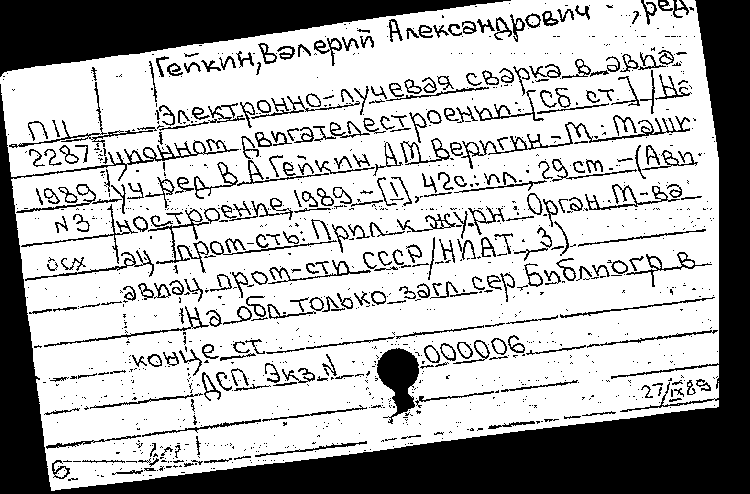 Гейкин, Валерий Александрович - , ред.
Электронно-лучевая сварка в авиа-
П11 ционном двигателестроении: [Сб. ст.] / На
2287 уч. ред. В.А. Гейкин, А.М. Веригин. - М.: Маши
1989 ностроение, 1989. - [1], 42 с.: ил.; 29 см. - (Ави
N3 ац. пром-сть: Прил. к журн.: Орган М-ва
осх авиац. пром-сти СССР / НИАТ; 3)
На обл. только загл. сер. Библиогр. в
конце ст.
ДСП. Экз. N 000006.
27/IX 89
6